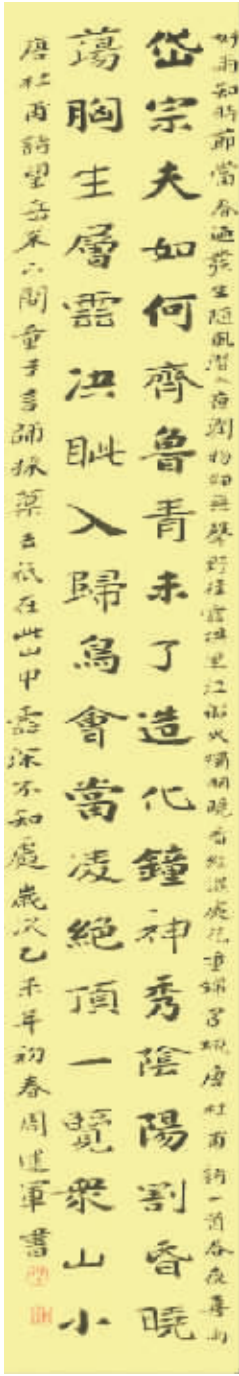 好雨知時節當春迺發生随風潛入夜潤物細無聲野徑雲俱黑江船火獨明曉看紅濕處花重錦官城唐杜甫詩一首春夜喜雨
岱宗夫如何齊魯青未了造化鐘神秀陰陽割昏曉
蕩胸生層雲決眦入歸鳥會當凌絕頂一覽衆山小
唐杜甫詩望岳 六 問童子言師採藥去祇在此山中雲深不知處歲次乙未年初春周述軍書